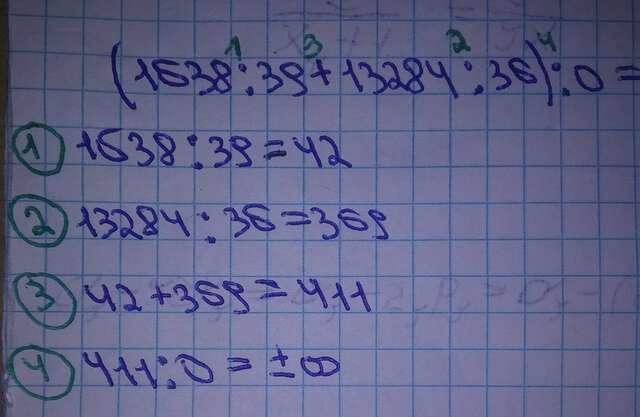 1 3 2 4
(1638:39+13284:36):0=
1 1638:39=42
2 13284:36=369
3 42+369=411
4 411:0=±∞